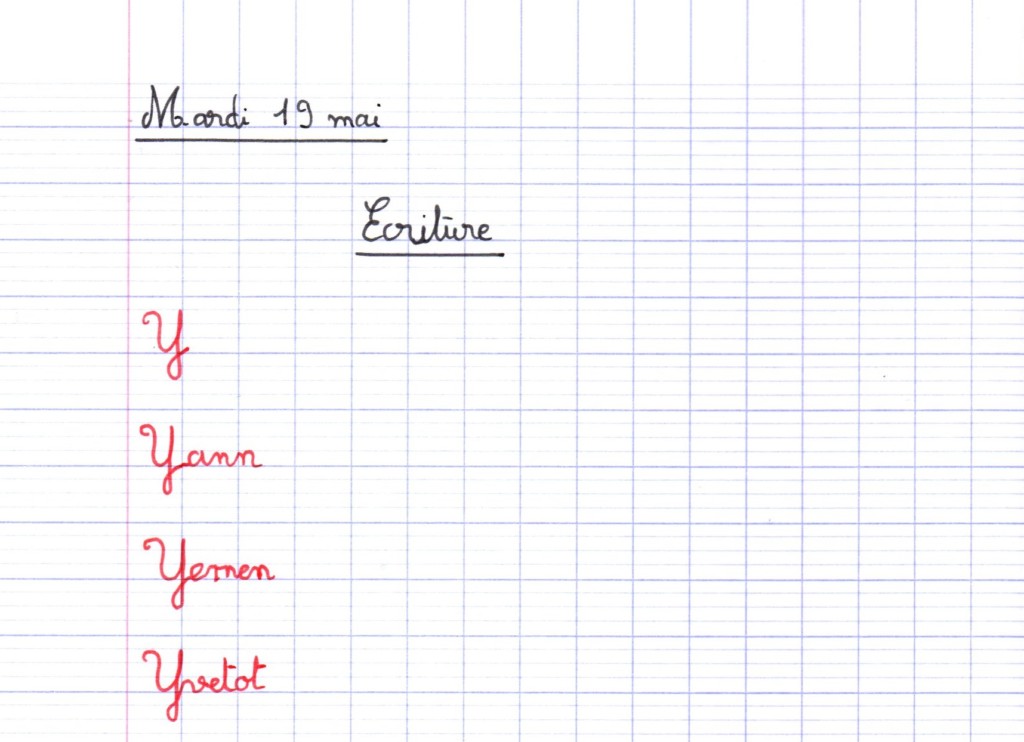 Mardi 19 mai
Ecriture
Y
Yann
Yemen
Yvetot